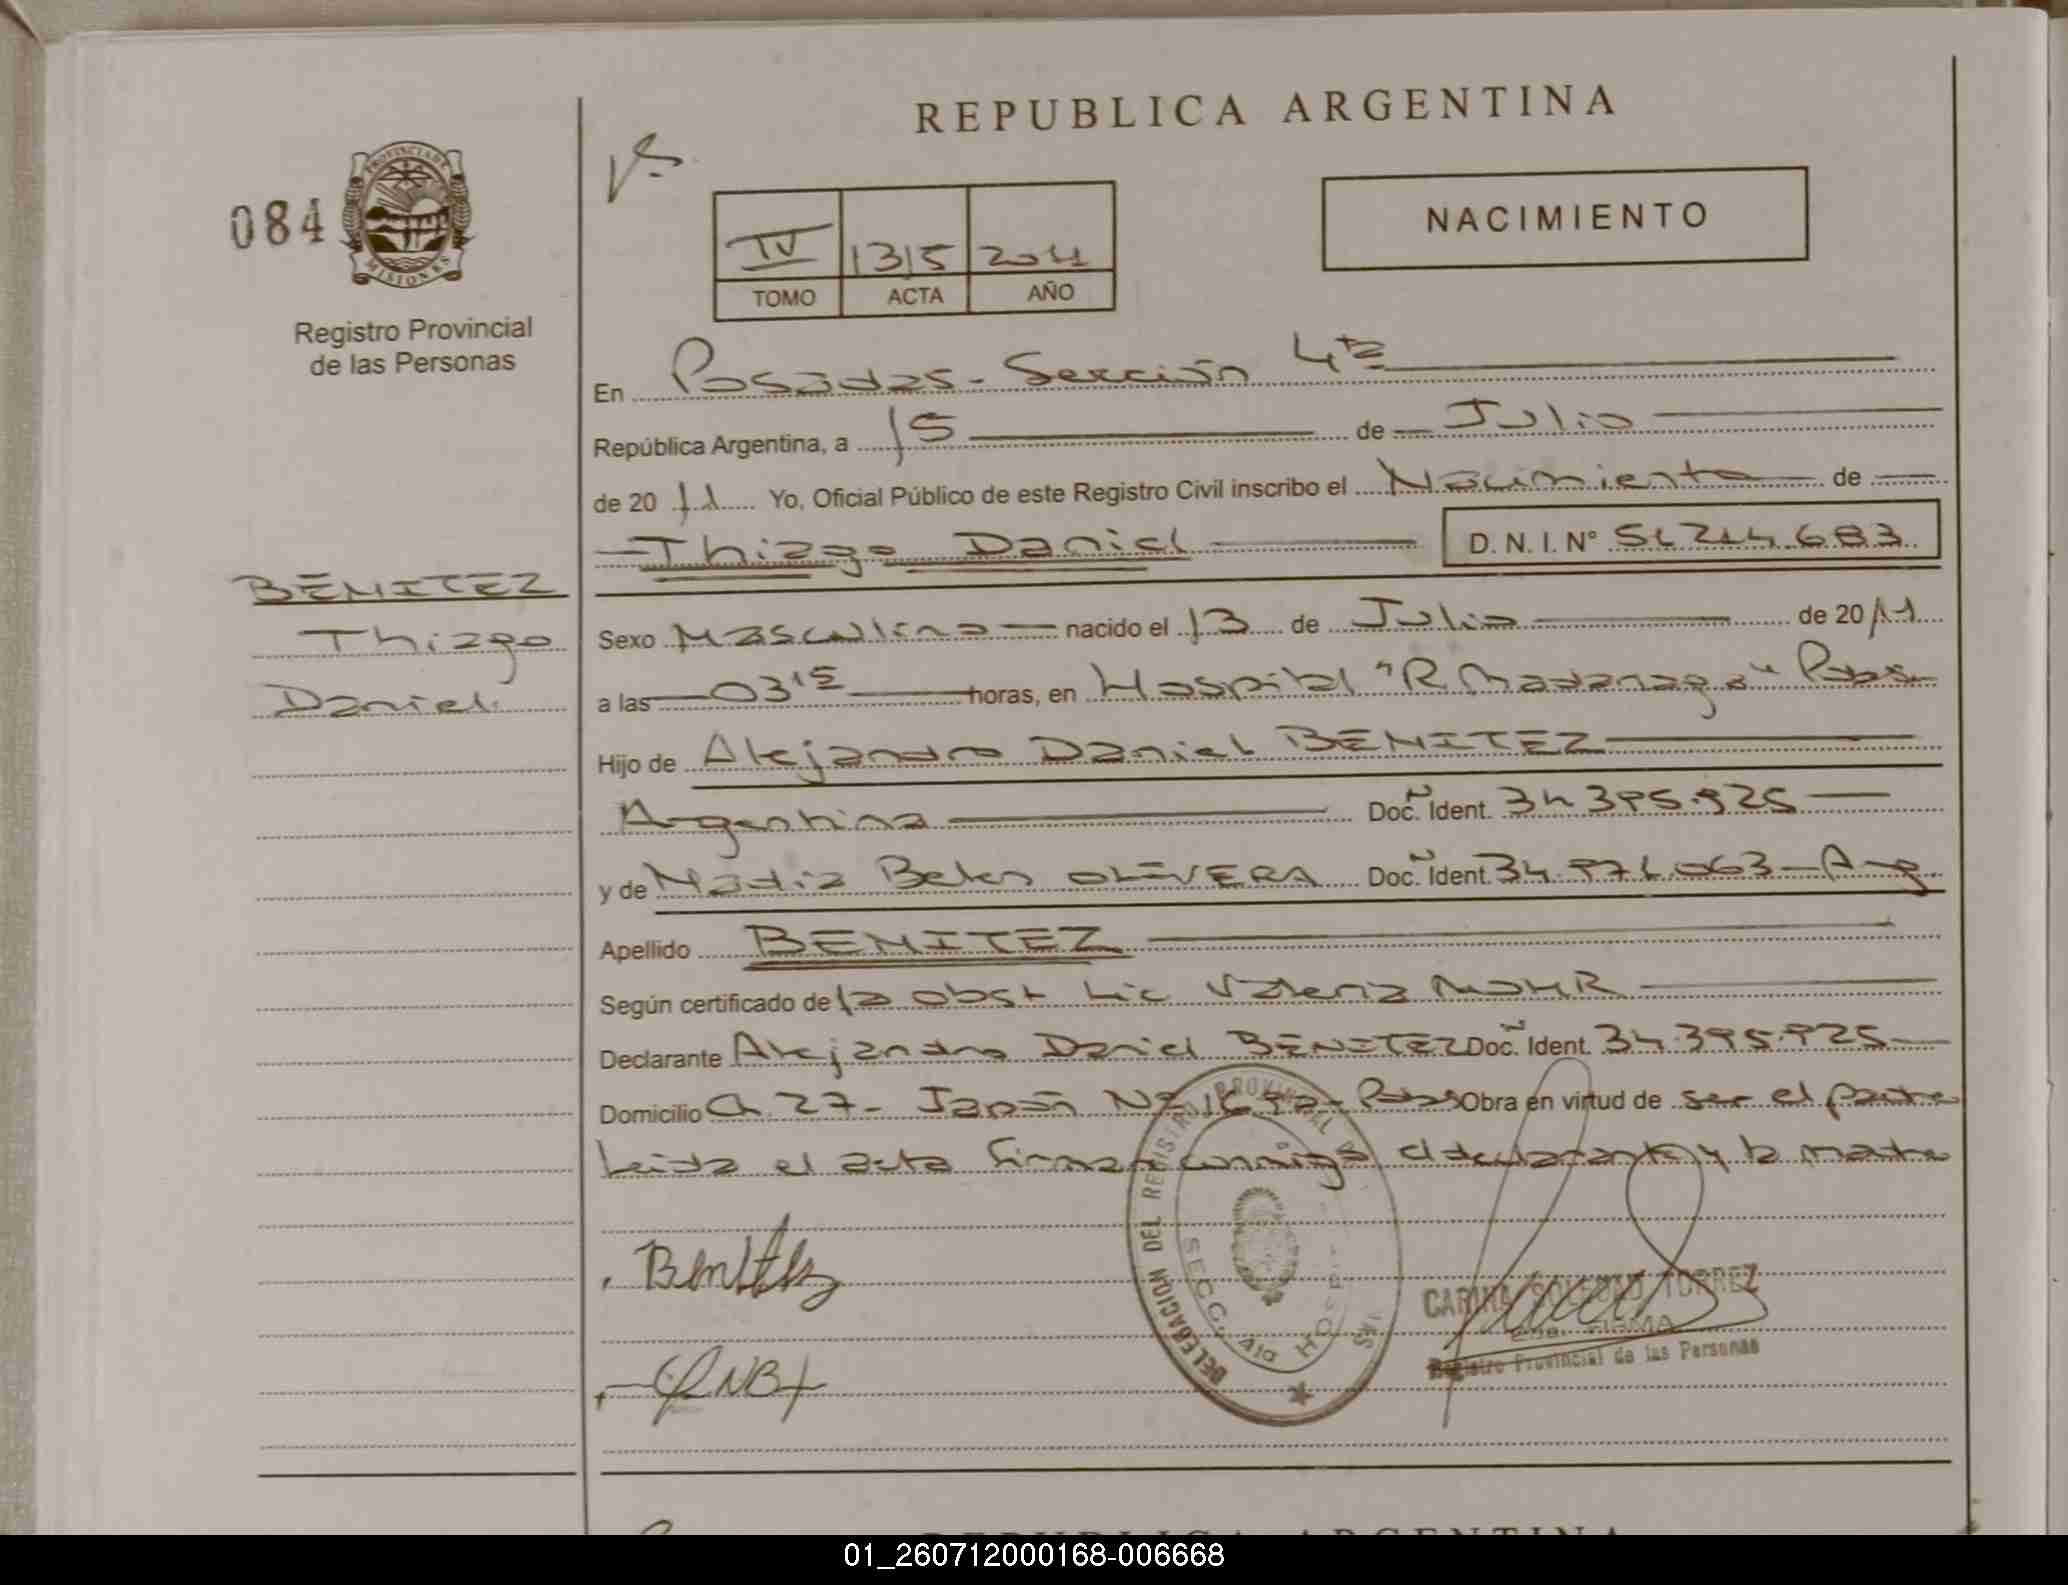 REPUBLICA ARGENTINA
084
PROVINCIA DE MISIONES
Registro Provincial
de las Personas
IV 1315 2011
TOMO ACTA AÑO
NACIMIENTO
En Posadas - Sección 4ta
República Argentina, a 15 de Julio
de 2011 Yo, Oficial Público de este Registro Civil inscribo el Nacimiento de
Thiago Daniel D. N. I. N° 51.214.683
BENITEZ
Thiago
Daniel
Sexo Masculino nacido el 13 de Julio de 2011
a las 03 15 horas, en Hospital "R Madariaga" Pdas
Hijo de Alejandro Daniel BENITEZ
Argentina Doc. Ident. 34.395.925
y de Nadia Belen OLIVERA Doc. Ident. 34.971.063 - Arg
Apellido BENITEZ
Según certificado de la obst Lic Valeria MOHR
Declarante Alejandro Daniel BENITEZ Doc. Ident. 34.395.925
Domicilio Ch. 27 - Japón Nº Pdas Obra en virtud de ser el padre
Leida el acta firman conmigo el declarante y la madre
Benitez
DELEGACION DEL REGISTRO PROVINCIAL DE
SECC. 4ta
CARINA SOLEDAD TORREZ
FIRMA
Registro Provincial de las Personas
REPUBLICA ARGENTINA
01_260712000168-006668